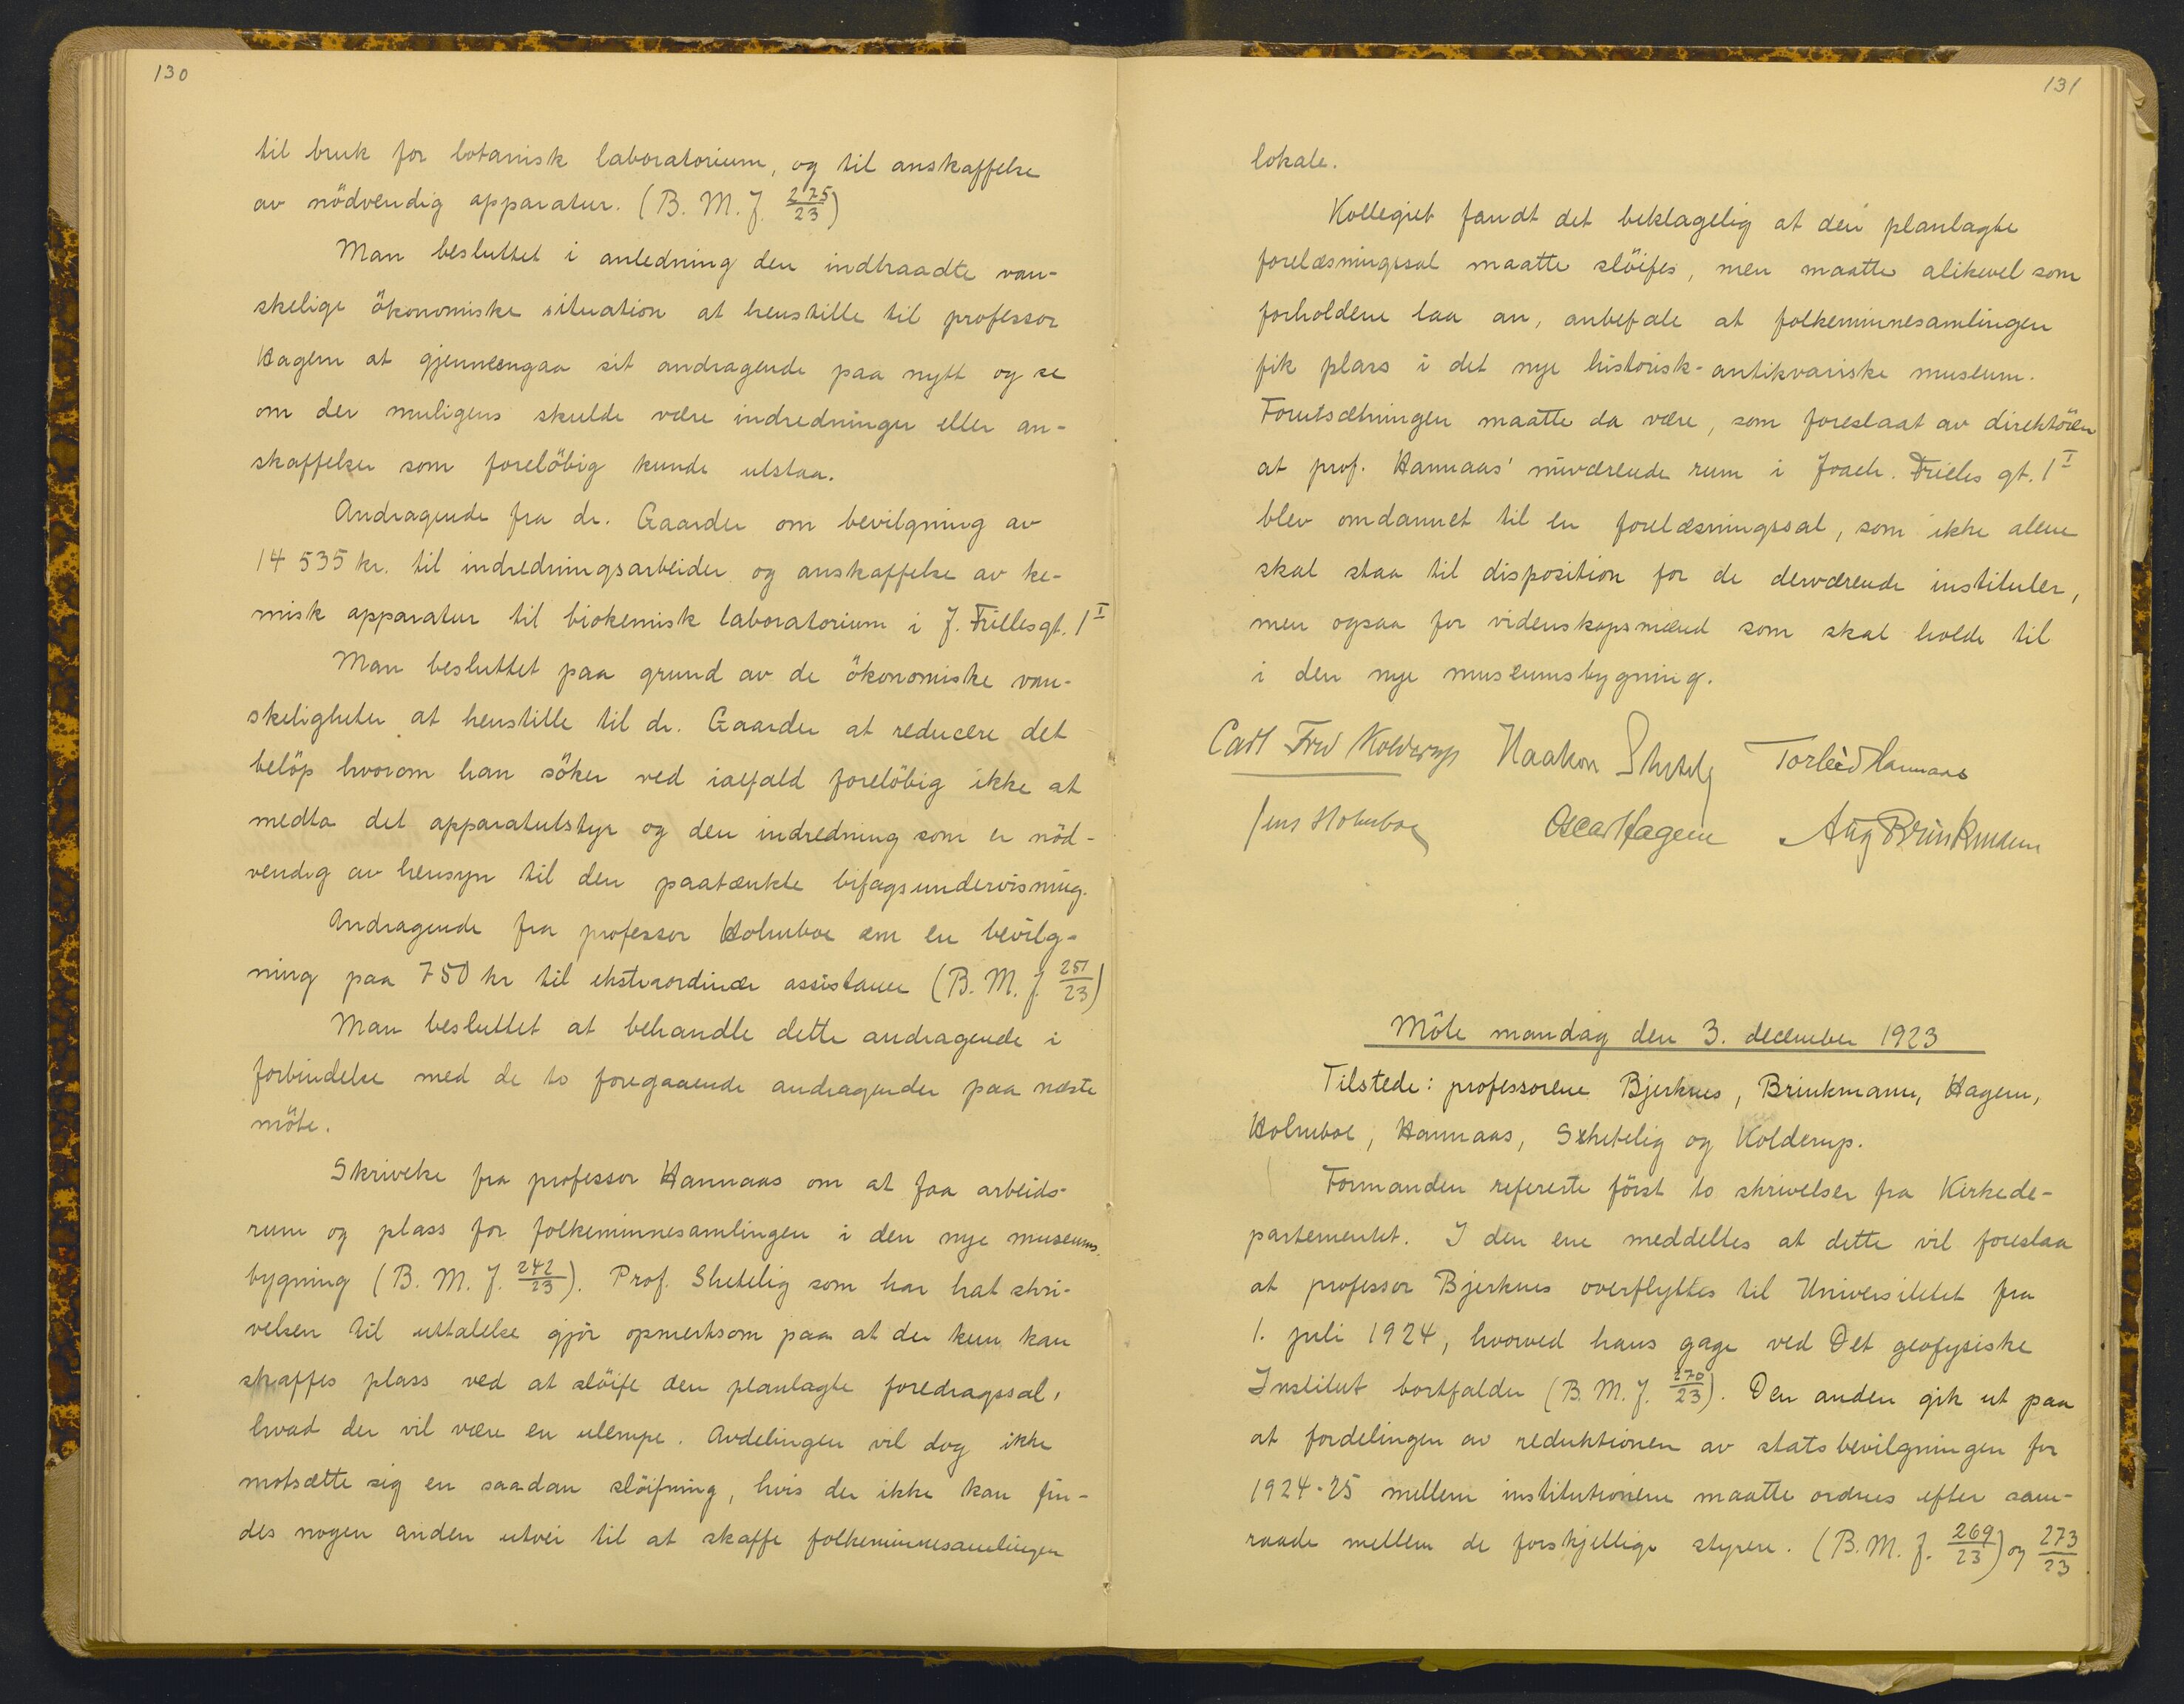 130
til bruk for botanisk laboratorium, og til anskaffelse
av nödvendig apparatur. (B. M. J. 275/23)
Man besluttet i anledning den indtraadte van-
skelige ökonomiske situation at henstille til professor
Hagem at gjennemgaa sit andragende paa nytt og se
om der muligens skulde være indredninger eller an-
skaffelser som forelöbig kunde utstaa.
Andragende fra dr. Gaarder om bevilgning av
14 535 kr. til indredningsarbeider og anskaffelse av ke-
misk apparatur til biokemisk laboratorium i J. Frielesgt. 1 I
Man besluttet paa grund av de ökonomiske van-
skeligheter at henstille til dr. Gaarder at reducere det
belöp hvorom han söker ved ialfald forelöbig ikke at
medta det apparatutstyr og den indredning som er nöd-
vendig av hensyn til den paatænkte bifagsundervisning.
Andragende fra professor Holmboe om en bevilg-
ning paa 750 kr til ekstraordinær assistanse (B. M. J. 251/23)
Man besluttet at behandle dette andragende i
forbindelse med de to foregaaende andragender paa næste
möte.
Skrivelse fra professor Hannaas om at faa arbeids-
rum og plass for folkeminnesamlingen i den nye museums-
bygning (B. M. J. 242/23). Prof. Shetelig som har hat skri-
velsen til uttalelse gjör opmerksom paa at der kun kan
skaffes plass ved at slöife den planlagte foredragssal,
hvad der vil være en ulempe. Avdelingen vil dog ikke
motsætte sig en saadan slöifning, hvis der ikke kan fin-
des nogen anden utvei til at skaffe folkeminnesamlingen
131
lokale.
Kollegiet fandt det beklagelig at den planlagte
forelæsningssal maatte slöifes, men maatte alikevel som
forholdene laa an, anbefale at folkeminnesamlingen
fik plass i det nye historisk-antikvariske museum.
Forutsætningen maatte da være, som foreslaat av direktören
at prof. Hannaas' nuværende rum i Joach. Frieles gt. 1 I
blev omdannet til en forelæsningssal, som ikke alene
skal staa til disposition for de derværende institutter,
men ogsaa for videnskapsmænd som skal holde til
i den nye museumsbygning.
Carl Fred Kolderup Haakon Shetelig Torleiv Hannaas
Jens Holmboe Oscar Hagem Aug Brinkmann
Möte mandag den 3. december 1923
Tilstede: professorene Bjerknes, Brinkmann, Hagem,
Holmboe, Hannaas, Shetelig og Kolderup.
Formanden refererte först to skrivelser fra Kirkede-
partementet. I den ene meddeltes at dette vil foreslaa
at professor Bjerknes overflyttes til Universitetet fra
1. juli 1924, hvorved hans gage ved Det geofysiske
Institut bortfalder (B. M. J. 270/23). Den anden gik ut paa
at fordelingen av reduktionen av statsbevilgningen for
1924-25 mellem institutionene maatte ordnes efter sam-
raade mellem de forskjellige styrer. (B. M. J. 269/23) og 273/23.